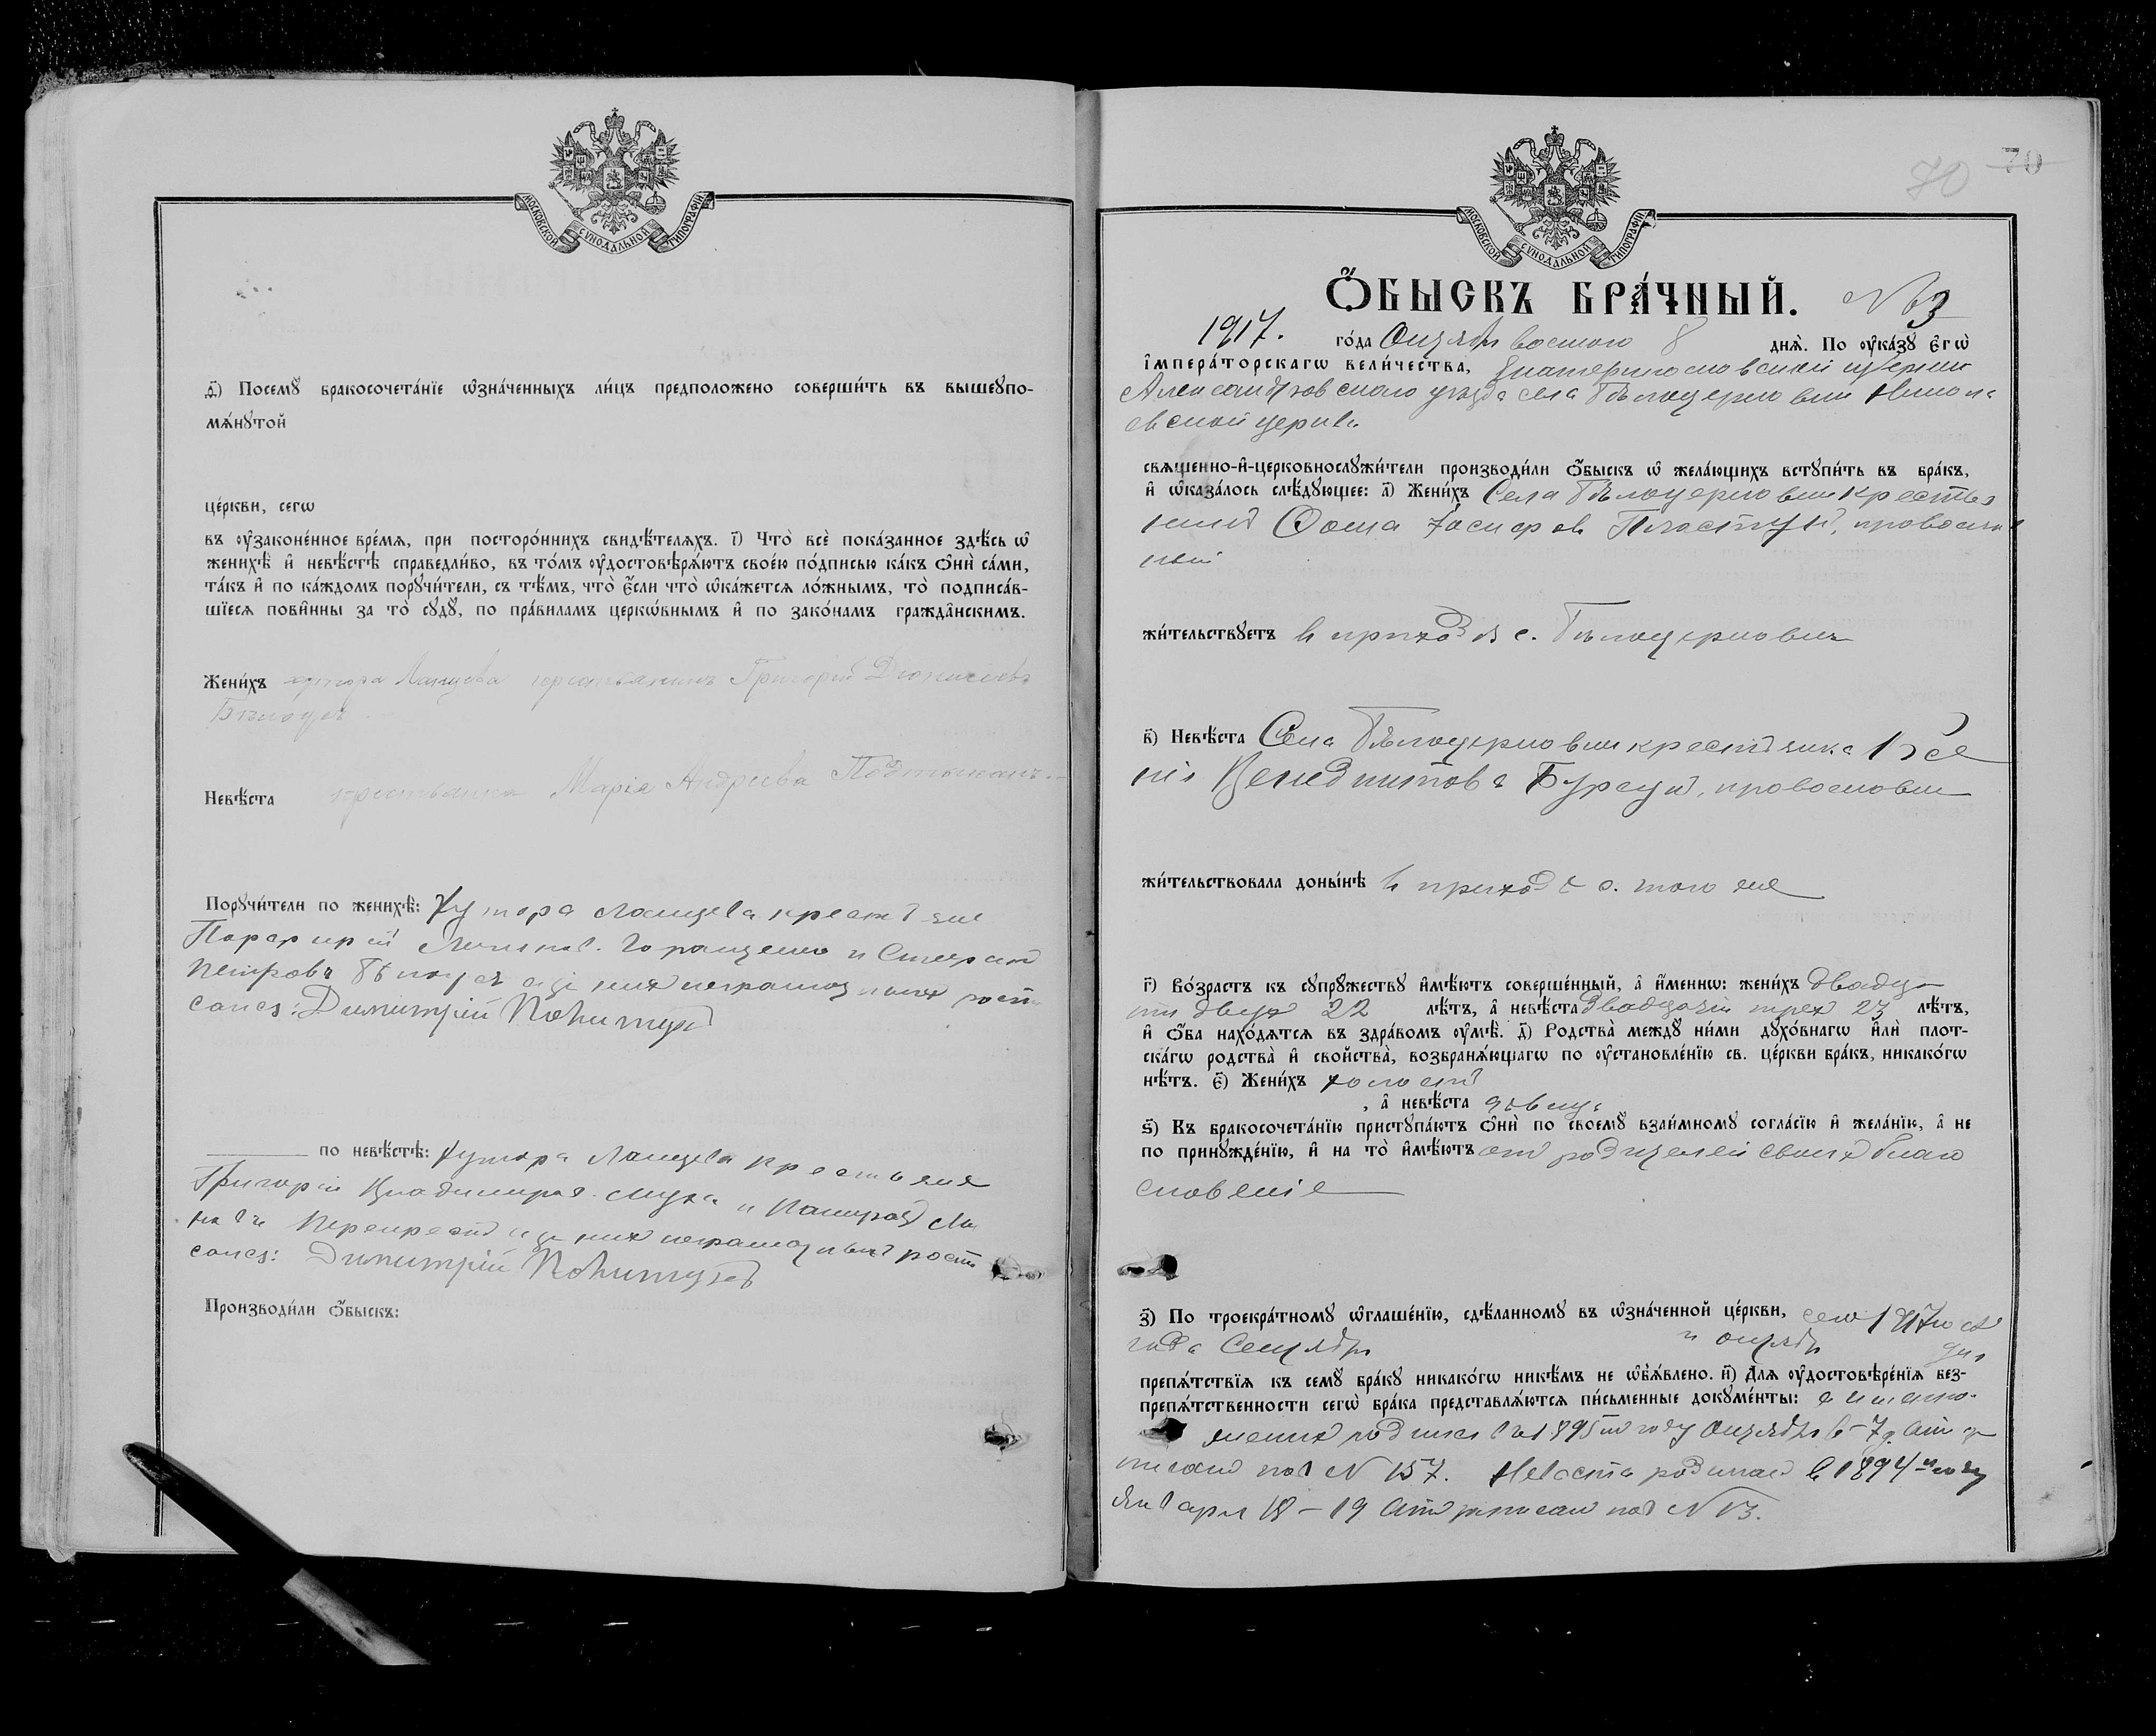 МОСКОВСКОЙ СѴНОДАЛЬНОЙ ТИПОГРАФІИ
д҃) Посемꙋ̀ бракосочета́нїе ѡ҆зна́ченныхъ ли́цъ предположено соверши́ть въ вышеꙋпо-
мѧ́нꙋтой
це́ркви, сегѡ
въ ᲂу҆законе́нное вре́мѧ, при посторо́ннихъ свидѣ́телѧхъ. і҃) Что̀ всѐ пока́занное здѣ́сь ѡ҆
женихѣ̀ и҆ невѣ́стѣ справедли́во, въ то́мъ ᲂу҆достовѣрѧ́ютъ свое́ю по́дписью ка́къ Ѻ҆нѝ са́ми,
та́къ и҆ по ка́ждомъ порꙋчи́тели, съ тѣ́мъ, что̀ є҆́сли что̀ ѡ҆ка́жетсѧ ло́жнымъ, то̀ подписа́в-
шїесѧ пови́нны за то̀ сꙋдꙋ̀, по пра́виламъ церкѡ́внымъ и҆ по зако́намъ гражда́нскимъ.
Жени́хъ хутора Ланцева крестьянинъ Григорій
Бѣлоус
Невѣ́ста крестьянка Марія Андреева
Порꙋчи́тели по женихѣ̀: Хутора Ланцева крестьяне
Порфирій и
Петровъ Бѣлоус
Димитрій
по невѣ́стѣ: Хутора Ланцева крестьяне
Григорій Владимиров Муха и
Димитрій
Производи́ли Ѻ҆́быскъ:
МОСКОВСКОЙ СѴНОДАЛЬНОЙ ТИПОГРАФІИ
70 70
Ѻ҆́БЫСКЪ БРА́ЧНЫЙ. №3
1917. го́да Октября восьмого 8 днѧ̀. По ᲂу҆ка́зꙋ Є҆гѡ̀
і҆мпера́торскагѡ вели́чества, Екатеринославской губерніи
Александровскаго уѣзда села Бѣлоцерковки Никола
евской церкви
свѧщенно-и҆-церковнослꙋжи́тели производи́ли Ѻ҆́быскъ ѡ҆ жела́ющихъ встꙋпи́ть въ бра́къ,
и҆ ѡ҆каза́лось слѣ́дꙋющее: а҃) Жени́хъ Села Бѣлоцерковки крестья
нинъ Фома Іосифов Пластун, православ
ный
жи́тельствꙋетъ в приходѣ с. Бѣлоцерковки
в҃) Невѣ́ста Села Бѣлоцерковки крестьянка
Венедиктова Бурсук, православн
жи́тельствовала доны́нѣ в приходѣ с. того же
г҃) Во́зрастъ къ сꙋпрꙋжествꙋ и҆мѣ́ютъ соверше́нный, а҆ и҆́меннѡ: жени́хъ двадца
ти двух 22 лѣ́тъ, а҆ невѣ́ста двадцати трех 23 лѣ́тъ,
и҆ Ѻ҆́ба нахо́дѧтсѧ въ здра́вомъ ᲂу҆мѣ̀. д҃) Родства̀ междꙋ̀ ни́ми дꙋхо́внагѡ и҆лѝ плот-
ска́гѡ родства̀ и҆ свойства̀, возбранѧ́ющагѡ по ᲂу҆становле́нїю св. це́ркви бра́къ, никако́гѡ
нѣ́тъ. є҃) Жени́хъ холост
, а҆ невѣ́ста дѣвица
ѕ҃) Къ бракосочета́нїю пристꙋпа́ютъ Ѻ҆нѝ по своемꙋ̀ взаи́мномꙋ согла́сїю и҆ жела́нїю, а҆ не
по принꙋжде́нїю, и҆ на то̀ и҆мѣ́ютъ от родителей своих благо
словеніе
з҃) По троекра́тномꙋ ѡ҆глаше́нїю, сдѣ́ланномꙋ въ ѡ҆зна́ченной це́ркви, сего 1917
года Сентября и октября дня
препѧ́тствїѧ къ семꙋ̀ бра́кꙋ никако́гѡ никѣ́мъ не ѡ҆б̾ѧ́влено. и҃) Длѧ ᲂу҆достовѣре́нїѧ без-
препѧ́тственности сегѡ̀ бра́ка представлѧ́ютсѧ пи́сьменные докꙋме́нты: а именно.
жених родился в 1895м году Октября 6-7 Акт за
писан под № 157. Невеста родилась в 1894м году
Января 18-19 Акт записан под № 13.